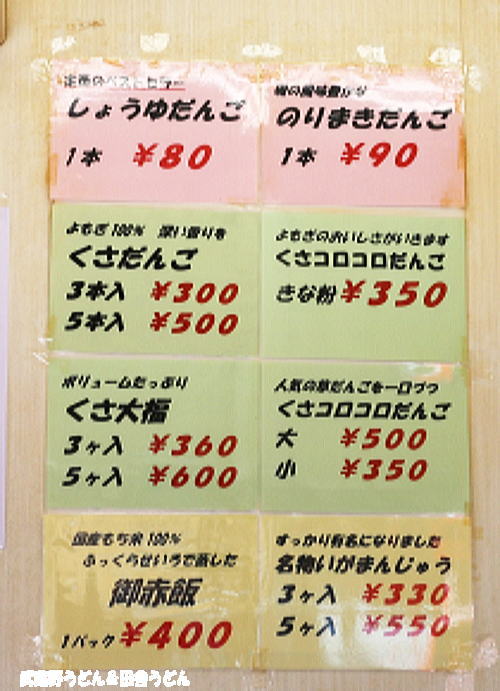 定番のベストセラー
しょうゆだんご
1本 ¥80
の風味豊かな
のりまきだんご
1本 ¥90
よもぎ100% 深い香りを
くさだんご
3本入 ¥300
5本入 ¥500
よもぎのおいしさがいきます
くさコロコロだんご
きな粉 ¥350
ボリュームたっぷり
くさ大福
3ヶ入 ¥360
5ヶ入 ¥600
人気の草だんごを一口づつ
くさコロコロだんご
大 ¥500
小 ¥350
国産もち米100%
ふっくらせいろで蒸した
御赤飯
1パック ¥400
すっかり有名になりました
名物いがまんじゅう
3ヶ入 ¥330
5ヶ入 ¥550
武蔵野うどん&田舎うどん